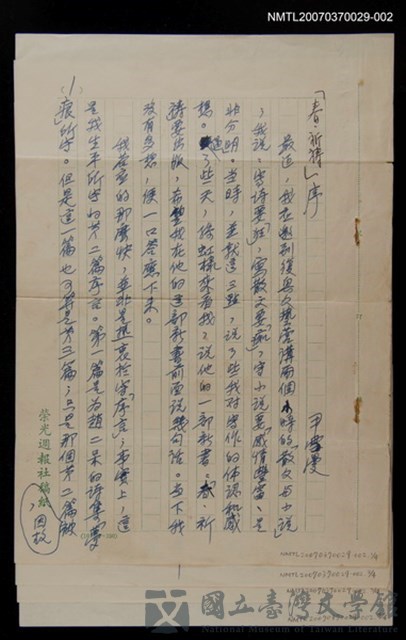 NMTL20070370029-002
「春・祈禱」序
尹雪曼
最近,我在
後與文藝
講兩個小時的「散文與小說
」,我說:寫詩要
,寫散文要
,寫小說要「感情豐富、是
非分明。」當時,並就這三點,說了些我對寫作的体認和感
想。過了些天,
來看我,說他的一部新書「春・祈
禱」要出版,希望我在他的這部新書前面說幾句話。當下我
沒有多想,便一口答應下來。
我答應的那麼快,並非是
於寫「序言」;事實上,這
是我生平所寫的第二篇序言。第一篇是為趙二呆的詩集「夢
痕」所寫。但是這一篇也可算是第三篇;只是那個第二篇被
,因故
(1)
榮光週報社稿紙
NMTL20070370029-002
NMTL20070370029-002
NMTL20070370029-002
國立臺灣文學館
National Museum of Taiwan Literature